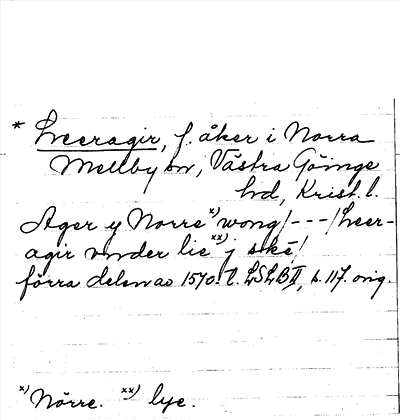 * Leeragir, f. åker i Norra
Mellby sn, Västra Göinge
hd, Krist. l.
Ager y Norre x) wong /---/ Leer-
agir vnder lie xx) j ske/
förra delen av 1570-t. LSLB II, s. 117. orig.
x) Nörre. xx) lye.